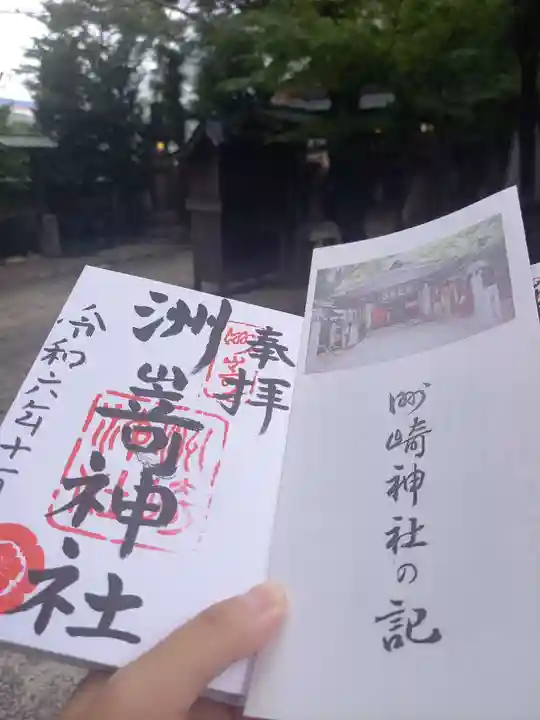 奉拝
洲嵜神社
令和六年十一月
洲崎神社の記